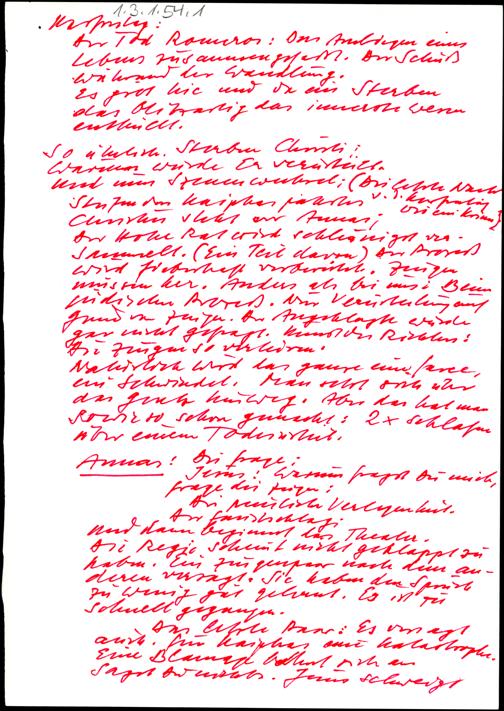 1.3.1.54.1
Karfreitag:
Der Tod Romeros: Das Anliegen eines
Lebens zusammengefaßt. Der Schuß
während der Wandlung.
Es gibt hie und da ein Sterben
das blitzartig das innerste Wesen
enthüllt.
So ähnlich. Sterben Christi:
Warum wurde Er verurteilt.
Und nun Szenenwechsel: (Die letzte Nacht
Stufen des Kaiphas palastes v. Karfreitag
Christus steht vor Annas, wie ein Krimi)
Der Hohe Rat wird schleunigst ver-
sammelt. (Ein Teil davon) Der Prozeß
wird fieberhaft vorbereitet. Zeugen
müssen her. Anders als bei uns: Beim
jüdischen Prozeß. Nur Verurteilung auf
Grund von Zeugen. Der Angeklagte wurde
gar nicht gefragt. Kunst des Richters:
Die Zeugen so verhören.
Natürlich wird das ganze eine Farce,
ein Schwindel. Man setzt sich über
das Gesetz hinweg. Aber das hat man
sowieso schon gemacht: 2x schlafen
über einem Todesurteil.
Annas: Die Frage:
Jesus: Warum fragst Du mich,
frage die Zeugen:
Die peinliche Verlegenheit.
Der Faustschlag:
Und dann beginnt das Theater.
Die Regie scheint nicht geklappt zu
haben. Ein Zeugenpaar nach dem an-
deren versagt. Sie haben den Spruch
zu wenig gut gelernt. Es ist zu
schnell gegangen.
Das letzte Paar: Es versagt
auch. Für Kaiphas eine Katastrophe.
Eine Blamage bahnt sich an
Sagst Du nichts. Jesus schweigt